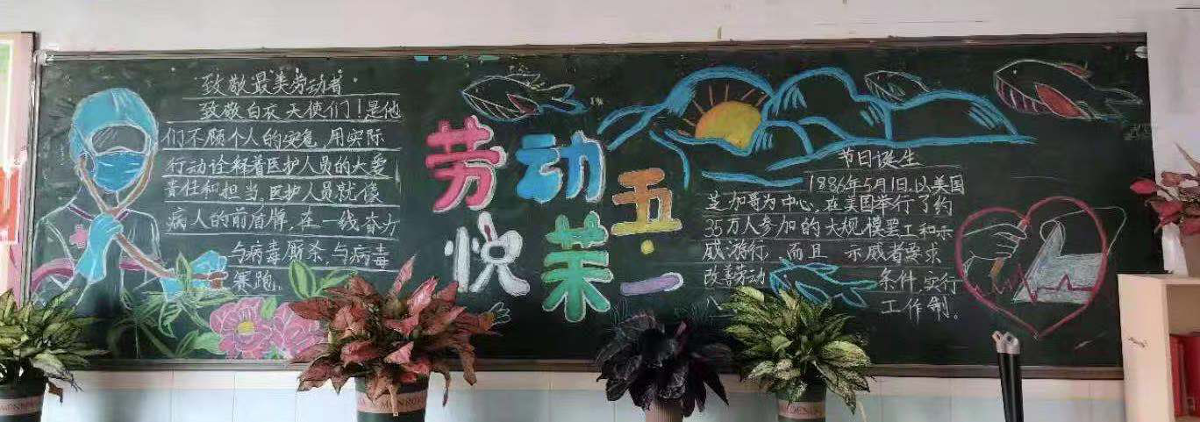 致敬最美劳动者
致敬白衣天使们！是他
们不顾个人的安危，用实际
行动诠释着医护人员的大爱
责任和担当，医护人员就像
病人的前盾牌，在一线奋力
与病毒厮杀，与病毒
赛跑。
劳动
悦
五·一
节日诞生
1886年5月1日，以美国
芝加哥为中心，在美国举行了约
35万人参加的大规模罢工和示
威游行，而且示威者要求
改善劳动条件，实行
八工作制。